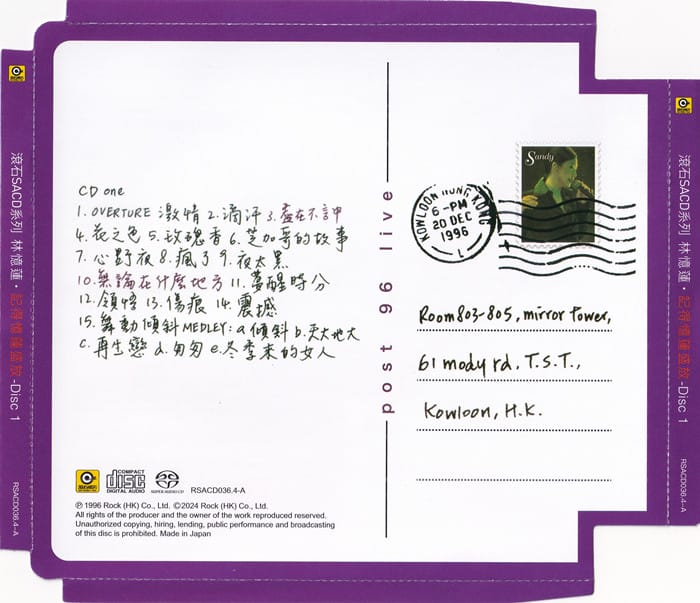 滾石SACD系列 林憶蓮・記得憶蓮盛放-Disc 1
RSACD036.4-A
CD one
1. OVERTURE 激情 2. 滴汗 3. 盡在不言中
4. 花之色 5. 玫瑰香 6. 芝加哥的故事
7. 心野夜 8. 瘋了 9. 夜太黑
10. 無論在什麼地方 11. 夢醒時分
12. 領悟 13. 傷痕 14. 震撼
15. 舞動傾斜 MEDLEY: a. 傾斜 b. 天大地大
c. 再生戀 d. 匆匆 e. 冬季來的女人
COMPACT
disc
DIGITAL AUDIO
SUPER AUDIO CD
RSACD036.4-A
℗ 1996 Rock (HK) Co., Ltd. ©2024 Rock (HK) Co., Ltd.
All rights of the producer and the owner of the work reproduced reserved.
Unauthorized copying, hiring, lending, public performance and broadcasting
of this disc is prohibited. Made in Japan
post 96 live
KOWLOON HONG KONG
6-PM
20 DEC
1996
L
Sandy
Room 803-805, mirror tower,
61 mody rd. T.S.T.,
Kowloon, H.K.
滾石SACD系列 林憶蓮・記得憶蓮盛放-Disc 1
RSACD036.4-A